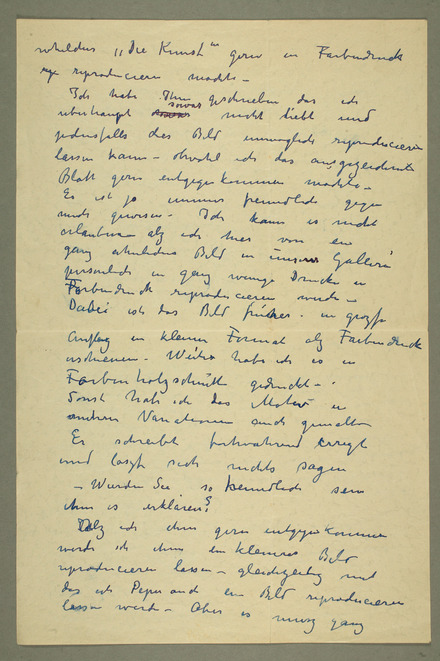 welches „Die Kunst" gern in Farbendruck
reproducieren möchte –
Ich habe Ihm geschrieben das ich
überhaupt sowas nicht liebt und
jedenfalls das Bild unmöglich reproducieren
lassen kann – obwohl ich das ausgezeichnete
Blatt gern entgegenkommen möchte –
Er ist ja immer freundlich gegen
mich gewesen – Ich kann es nicht
erlauben als ich hier von ein
ganz ähnliches Bild in unser Gallerie
persönlich in ganz wenige Drucke in
Farbendruck reproducieren
Dabei ist das Bild früher in
Auflag in kleinen Format als Farbendruck
erschienen – Weiter habe ich es in
Farbenholzschnitt gedruckt –
Sonst hab ich das Motiv in
andren Variationen auch gemalt
Er schreibt fortwährend
und laszt sich nichts sagen
– Würden Sie so freundlich sein
ihm es erklären?
ich ihm gern entgegenkommen
werde ich ihm ein kleineres Bild
reproducieren lassen – gleichzeitig mit
das ich Piper auch ein Bild reproducieren
lassen werde – Aber es musz ganz